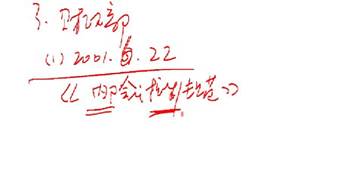 3. 财政部
(1) 2001.6.22
《内部会计控制规范》